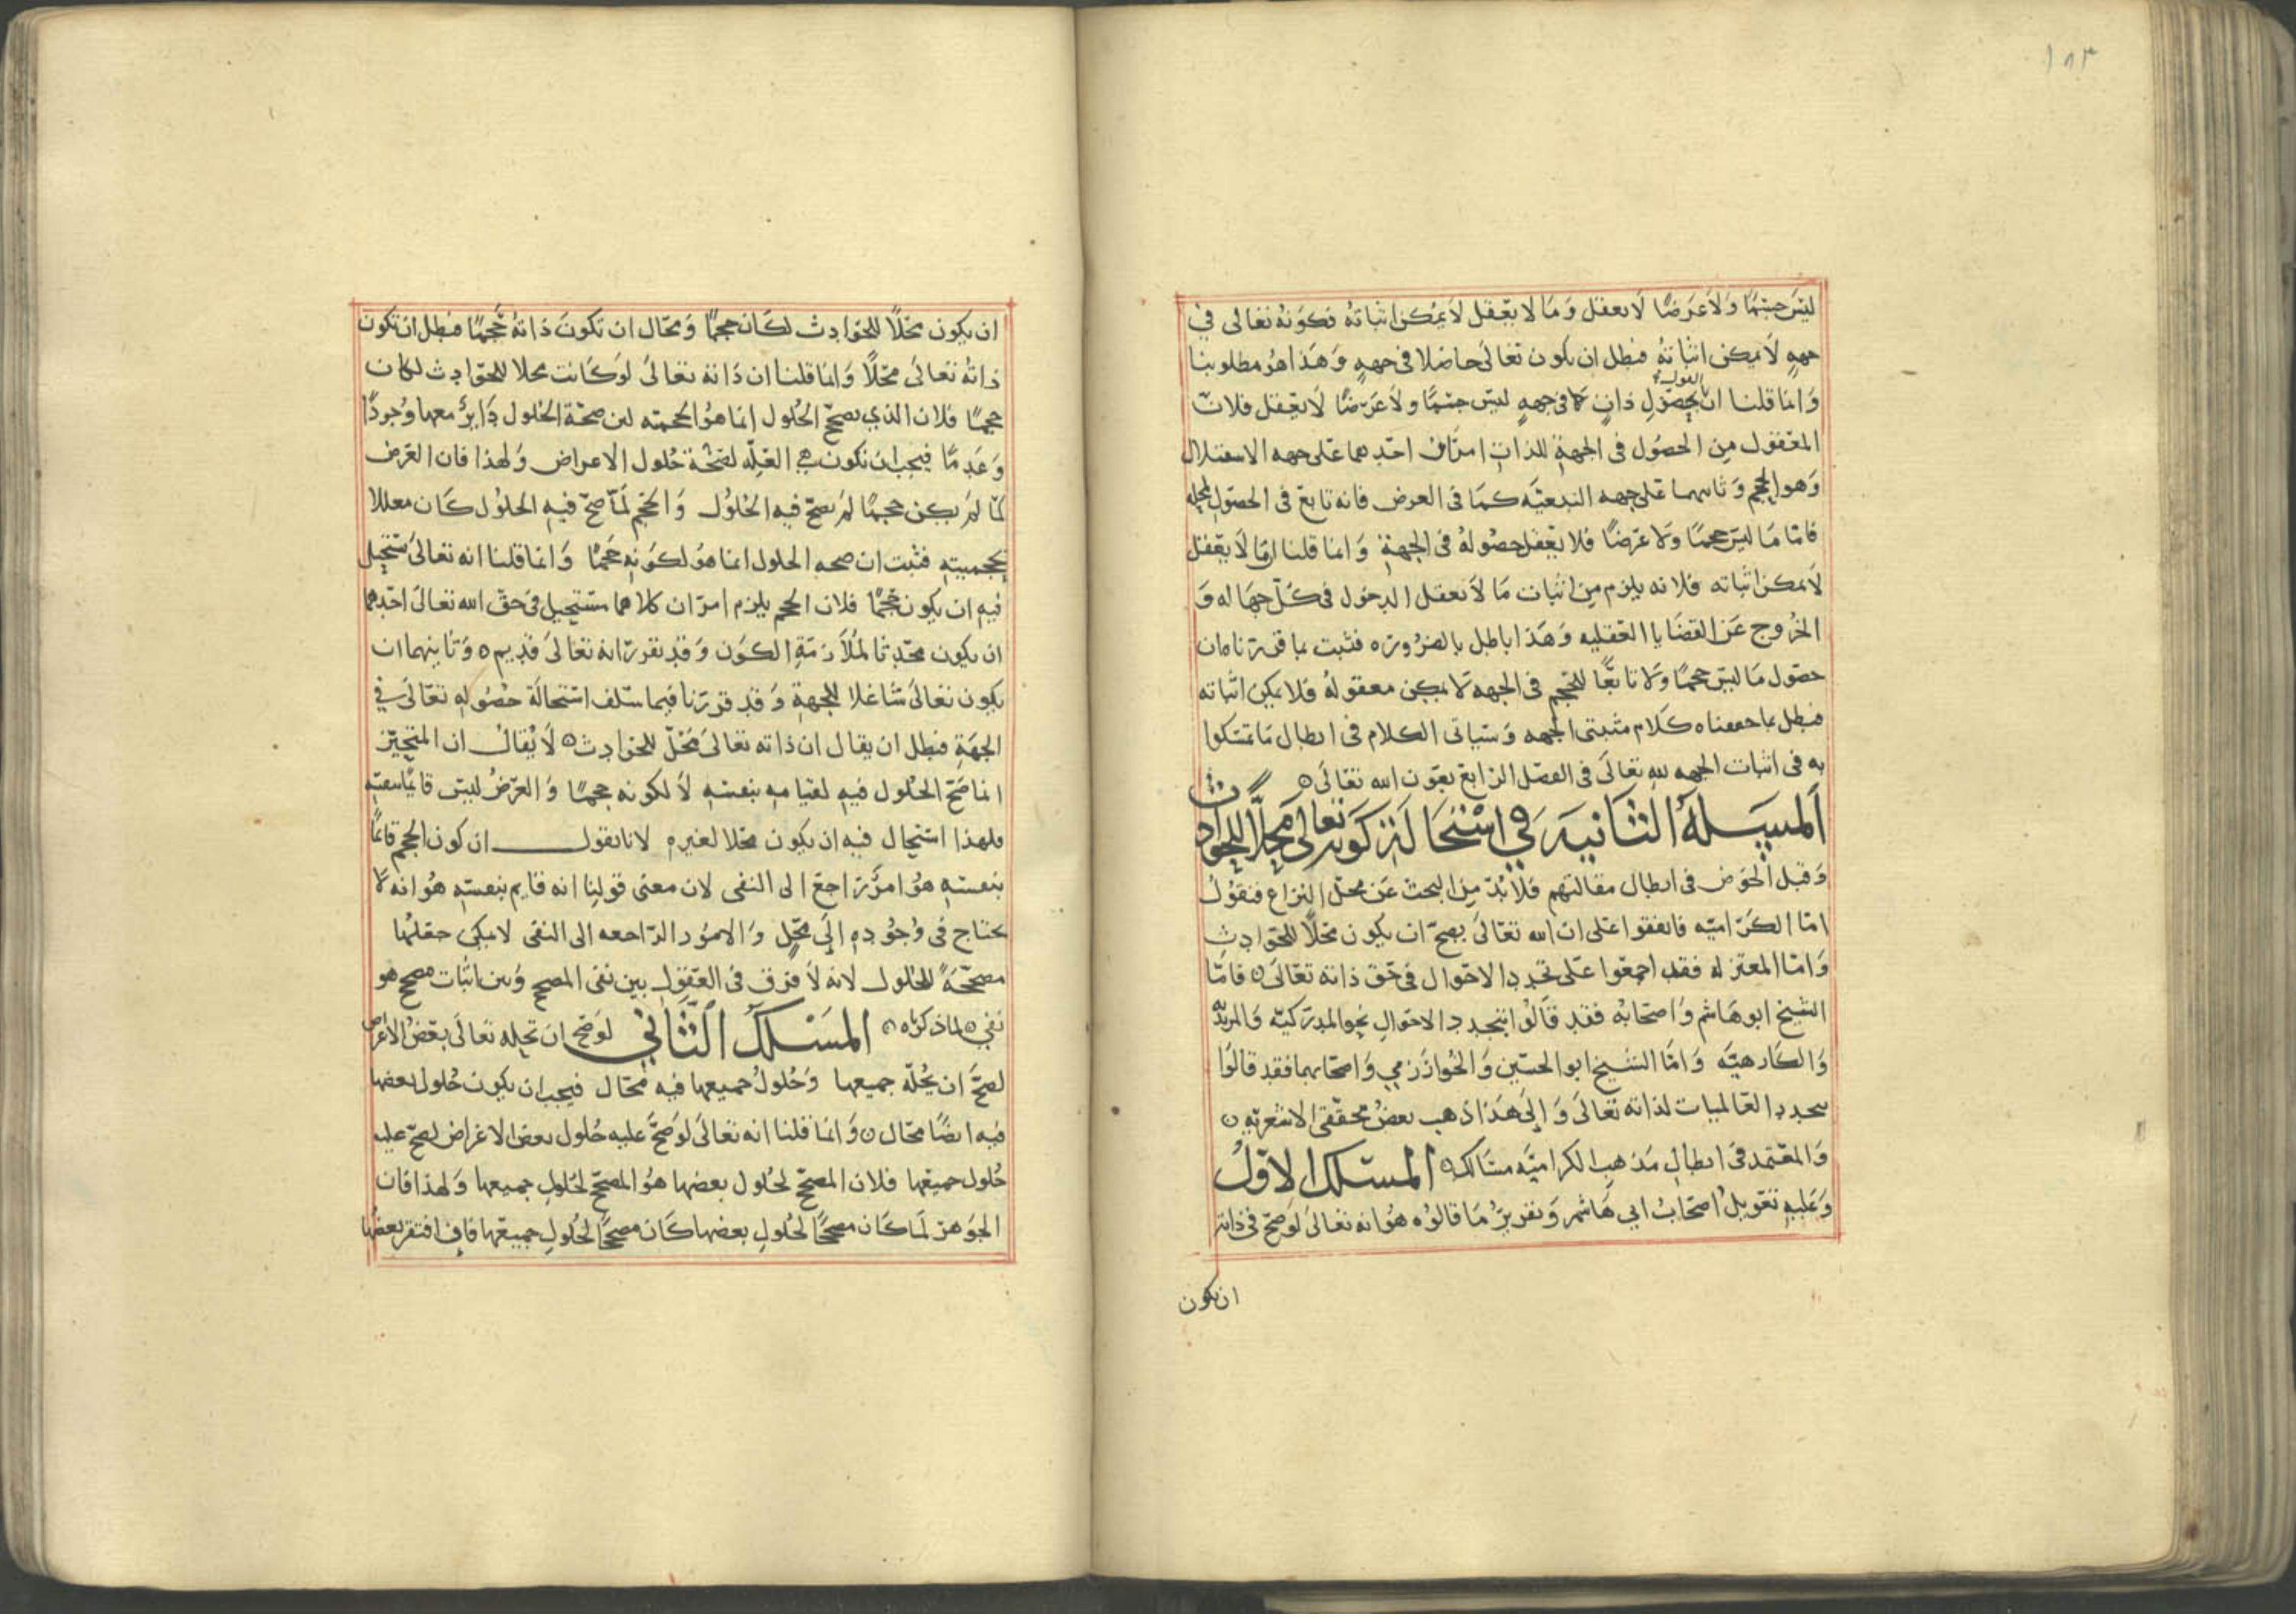 ١٨٣
ليس جسما ولا عرضا لا يعقل وما لا يعقل لا يمكن اثباته فكونه تعالى في
جهه لا يمكن اثباته فبطل ان يكون تعالى حاصلا في جهه وهذا هو مطلوبنا
القول
وانما قلنا ان بحصول ذات في جهه ليس جسما ولا عرضا لا يعقل فلان
المعقول من الحصول في الجهة للذات امران احدهما على جهه الاستقلال
وهو الحجم وثانيهما على جهه التبعيه كما في العرض فانه تابع في الحصول لمحله
فاما ما ليس حجما ولا عرضا فلا يعقل حصوله في الجهة وانما قلنا ان ما لا يعقل
لا يمكن اثباته فلانه يلزم من اثبات ما لا نعقل الدخول في كل جهاله و
الخروج عن القضايا العقليه وهذا باطل بالضرورة فثبت بما قررناه ان
حصول ما ليس حجما ولا تابعا للحجم في الجهه لا يمكن معقوله فلا يمكن اثباته
فبطل بما حققناه كلام مثبتى الجهه وسياتى الكلام في ابطال ما تمسكوا
به في اثبات الجهه لله تعالى في الفصل الرابع بعون الله تعالى ٥
المسيلة الثانيه في استحالة كونه تعالى محلا للحوادث
وقبل الخوض في ابطال مقالتهم فلا بد من البحث عن محل النزاع فنقول
اما الكراميه فاتفقوا على ان الله تعالى يصح ان يكون محلا للحوادث
واما المعتزله فقد اجمعوا على تجدد الاحوال في حق ذاته تعالى ٥ فاما
الشيخ ابو هاشم واصحابه فقد قالوا بتجدد الاحوال نحو المدركيه والمريديه
والكارهيه واما الشيخ ابو الحسين والخوارزمي واصحابهما فقد قالوا
بتجدد العالميات لذاته تعالى والى هذا ذهب بعض محققى الاشعريه ٥
والمعتمد في ابطال مذهب الكراميه مسالك ٥ المسلك الاول
وعليه تعويل اصحاب ابي هاشم وتقرير ما قالوه هو انه تعالى لو صح في ذاته
ان يكون
ان يكون محلا للحوادث لكان حجما ومحال ان تكون ذاته حجما فبطل ان تكون
ذاته تعالى محلا وانما قلنا ان ذاته تعالى لو كانت محلا للحوادث لكان
حجما فلان الذي يصحح الحلول انما هو الحجميه لان صحة الحلول دائر معها وجودا
وعدما فيجب ان تكون هي العله لصحة حلول الاعراض ولهذا فان العرض
لما لم يكن حجما لم يصح فيه الحلول والحجم لما صح فيه الحلول كان معللا
بحجميته فثبت ان صحه الحلول انما هو لكونه حجما وانما قلنا انه تعالى يستحيل
فيه ان يكون حجما فلان الحجم يلزم امران كلاهما مستحيل في حق الله تعالى احدهما
ان يكون محدثا لملازمة الكون وقد تقرر انه تعالى قديم ٥ وثانيهما ان
يكون تعالى شاغلا للجهة وقد قررنا فيما سلف استحالة حصوله تعالى في
الجهة فبطل ان يقال ان ذاته تعالى محل للحوادث ٥ لا يقال ان المتحيز
انما صح الحلول فيه لقيامه بنفسه لا لكونه حجما والعرض ليس قايما بنفسه
فلهذا استحال فيه ان يكون محلا لغيره لانا نقول ان كون الحجم قائما
بنفسه هو امر راجع الى النفى لان معنى قولنا انه قايم بنفسه هو انه لا
يحتاج في وجوده الى محل والامور الراجعه الى النفى لا يمكن جعلها
مصححة للحلول لانه لا فرق في العقول بين نفى المصحح وبين اثبات مصحح هو
نفي ٥ لما ذكرناه ٥ المسلك الثاني لو صح ان تحله تعالى بعض الاعراض
لصح ان يحله جميعها وحلول جميعها فيه محال فيجب ان يكون حلول بعضها
فيه ايضا محال ٥ وانما قلنا انه تعالى لو صح عليه حلول بعض الاعراض لصح عليه
حلول جميعها فلان المصحح لحلول بعضها هو المصحح لحلول جميعها ولهذا فان
الجوهر لما كان مصححا لحلول بعضها كان مصححا لحلول جميعها فان افتقر بعضها